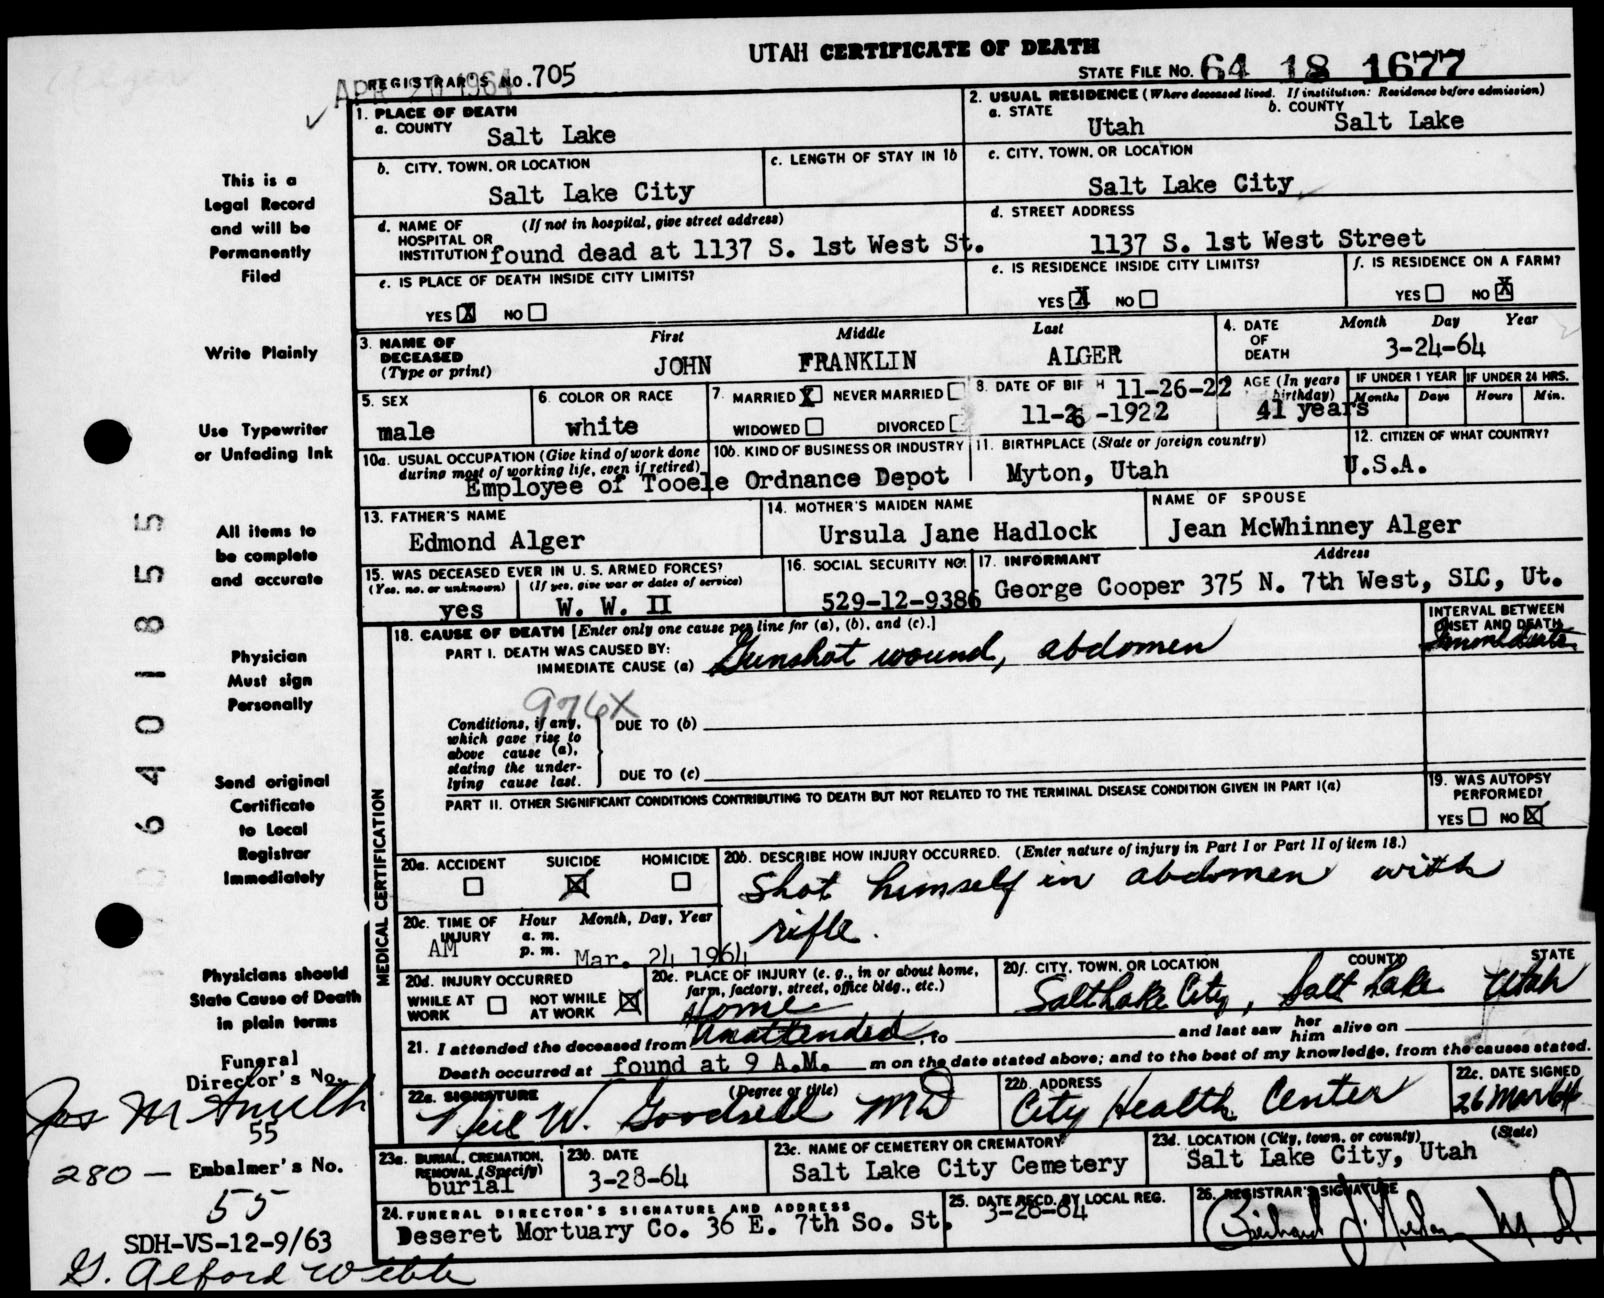 UTAH CERTIFICATE OF DEATH
REGISTRAR'S NO. 705
APR 20 1964
STATE FILE NO. 64 18 1677
1. PLACE OF DEATH
a. COUNTY Salt Lake
2. USUAL RESIDENCE (Where deceased lived. If institution: Residence before admission)
a. STATE Utah
b. COUNTY Salt Lake
b. CITY, TOWN, OR LOCATION
Salt Lake City
c. LENGTH OF STAY IN 1b
c. CITY, TOWN, OR LOCATION
Salt Lake City
d. NAME OF HOSPITAL OR INSTITUTION (If not in hospital, give street address)
found dead at 1137 S. 1st West St.
d. STREET ADDRESS
1137 S. 1st West Street
e. IS PLACE OF DEATH INSIDE CITY LIMITS?
YES X NO
e. IS RESIDENCE INSIDE CITY LIMITS?
YES X NO
f. IS RESIDENCE ON A FARM?
YES NO X
3. NAME OF DECEASED (Type or print)
First Middle Last
JOHN FRANKLIN ALGER
4. DATE OF DEATH
Month Day Year
3-24-64
5. SEX
male
6. COLOR OR RACE
white
7. MARRIED X NEVER MARRIED
WIDOWED DIVORCED
8. DATE OF BIRTH 11-26-22
11-26-1922
AGE (In years birthday)
41 years
IF UNDER 1 YEAR
Months Days
IF UNDER 24 HRS.
Hours Min.
10a. USUAL OCCUPATION (Give kind of work done during most of working life, even if retired)
10b. KIND OF BUSINESS OR INDUSTRY
Employee of Tooele Ordnance Depot
11. BIRTHPLACE (State or foreign country)
Myton, Utah
12. CITIZEN OF WHAT COUNTRY?
U.S.A.
13. FATHER'S NAME
Edmond Alger
14. MOTHER'S MAIDEN NAME
Ursula Jane Hadlock
NAME OF SPOUSE
Jean McWhinney Alger
15. WAS DECEASED EVER IN U. S. ARMED FORCES?
(Yes, no, or unknown) (If yes, give war or dates of service)
yes W. W. II
16. SOCIAL SECURITY NO.
529-12-9386
17. INFORMANT Address
George Cooper 375 N. 7th West, SLC, Ut.
18. CAUSE OF DEATH [Enter only one cause per line for (a), (b), and (c).]
PART I. DEATH WAS CAUSED BY:
IMMEDIATE CAUSE (a) Gunshot wound, abdomen
INTERVAL BETWEEN ONSET AND DEATH
Immediate
976X
Conditions, if any, which gave rise to above cause (a), stating the underlying cause last.
DUE TO (b)
DUE TO (c)
PART II. OTHER SIGNIFICANT CONDITIONS CONTRIBUTING TO DEATH BUT NOT RELATED TO THE TERMINAL DISEASE CONDITION GIVEN IN PART I(a)
19. WAS AUTOPSY PERFORMED?
YES NO X
MEDICAL CERTIFICATION
20a. ACCIDENT SUICIDE HOMICIDE
X
20b. DESCRIBE HOW INJURY OCCURRED. (Enter nature of injury in Part I or Part II of item 18.)
Shot himself in abdomen with
rifle.
20c. TIME OF INJURY Hour a. m. p. m. Month, Day, Year
AM Mar. 24 1964
20d. INJURY OCCURRED
WHILE AT WORK NOT WHILE AT WORK X
20e. PLACE OF INJURY (e. g., in or about home, farm, factory, street, office bldg., etc.)
Home
20f. CITY, TOWN, OR LOCATION COUNTY STATE
Salt Lake City, Salt Lake Utah
21. I attended the deceased from Unattended, to and last saw her him alive on
Death occurred at found at 9 A.M. m on the date stated above; and to the best of my knowledge, from the causes stated.
22a. SIGNATURE (Degree or title)
Neil W. Goodsell MD
22b. ADDRESS
City Health Center
22c. DATE SIGNED
26 Mar 64
23a. BURIAL, CREMATION, REMOVAL (Specify)
burial
23b. DATE
3-28-64
23c. NAME OF CEMETERY OR CREMATORY
Salt Lake City Cemetery
23d. LOCATION (City, town, or county) (State)
Salt Lake City, Utah
24. FUNERAL DIRECTOR'S SIGNATURE AND ADDRESS
Deseret Mortuary Co. 36 E. 7th So. St.
25. DATE RECD. BY LOCAL REG.
3-26-64
26. REGISTRAR'S SIGNATURE
This is a
Legal Record
and will be
Permanently
Filed
Write Plainly
Use Typewriter
or Unfading Ink
All items to
be complete
and accurate
Physician
Must sign
Personally
Send original
Certificate
to Local
Registrar
Immediately
Physicians should
State Cause of Death
in plain terms
Funeral
Director's No.
Jos M Smith
55
280 — Embalmer's No.
55
SDH-VS-12-9/63
G. Alford Webb
6401855
Alger